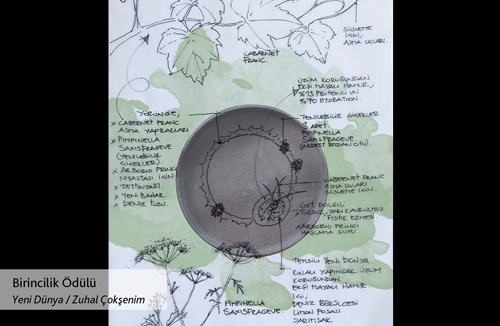 SİLÜETTE
İÇİN,
ASMA UÇLARI.
CABERNET
FRANC.
ÜZÜM KORUĞUNDAN
EKŞİ MAYALI HAMUR,
%13 PROTEİNLİ UN
%70 HYDRATION.
YÖRÜNGE;
x CABERNET FRANC
ASMA YAPRAKLARI
x PIMPINELLA
SAXISFRAGEVE
(YENİLEBİLİR
ÇİÇEKLER).
x ARBORIO PİRİNCİ
NİŞASTASI İÇİN
x ZEYTİNYAĞI.
x YENİ BAHAR.
x DENİZ TUZU.
YENİLEBİLİR ÇİÇEKLER
3 ADET
PIMPINELLA
SAXISFRAGEVE
CABERNET FRANC
ASMA UÇLARI
SİLÜETTE İÇİN.
ÜST DOLGU;
FISTIK EZMESİ
x ARBORIO PİRİNCİ
HAŞLAMA SUYU
TEMSİLİ YENİ DÜNYA
KINALI YAPINCAK ÜZÜM
KORUĞUNDAN
EKŞİ MAYALI HAMUR
İÇİ,
DENİZ BÖRÜLCESİ
LİMON POSASI
SARIMSAK
PIMPINELLA
SAXISFRAGEVE.
Birincilik Ödülü
Yeni Dünya / Zuhal Çokşenim